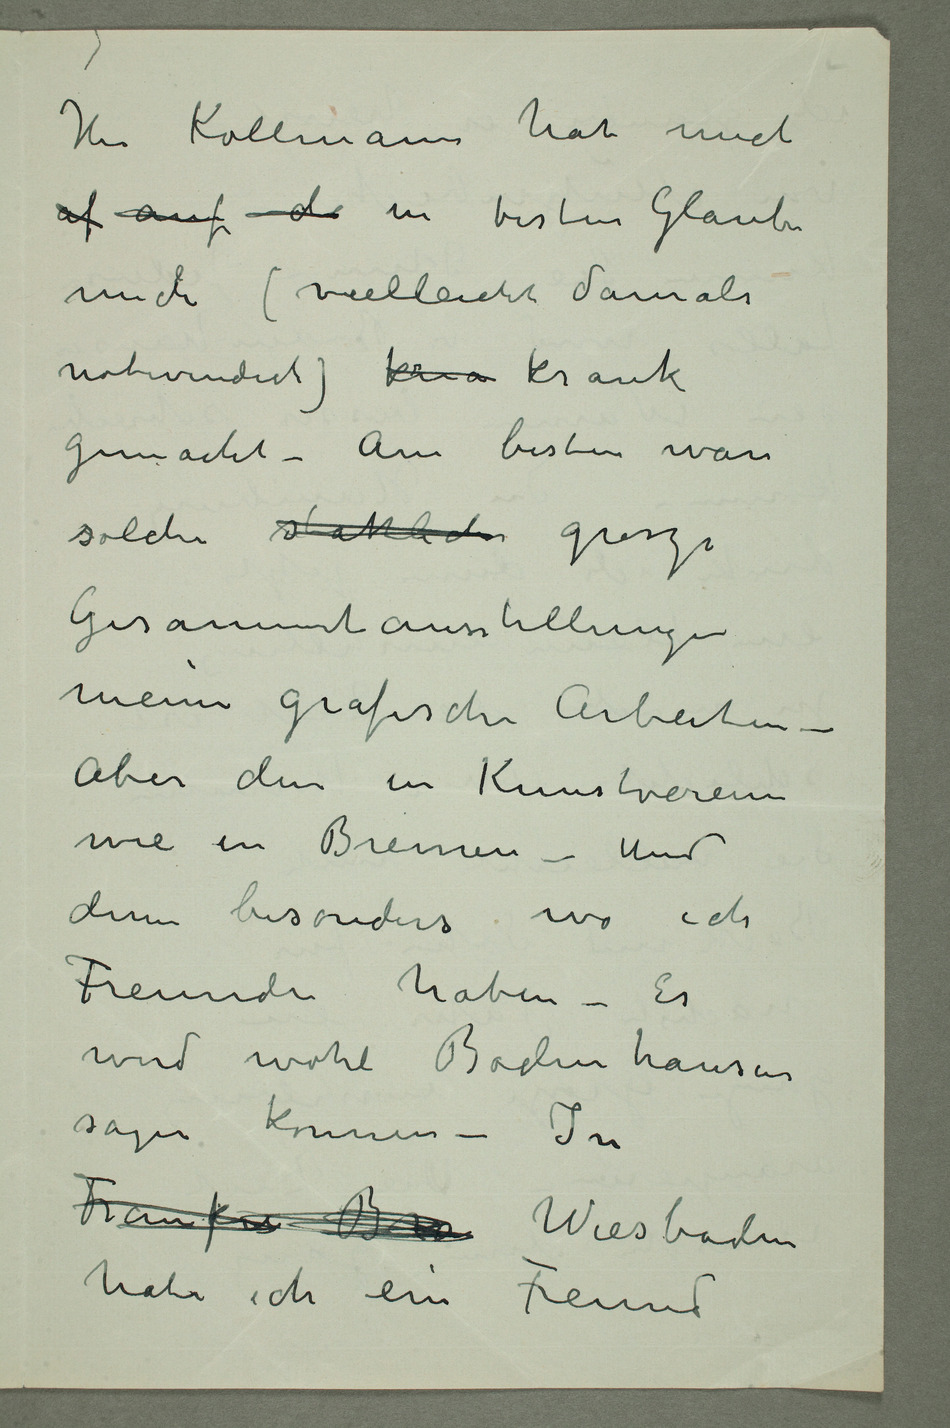 Herr Kollmann hat mich
af auf de in besten Glauben
mich (vielleicht damals
notwendich) kra krank
gemacht – Am besten ware
solche stattliche grosze
Gesammtausstellungen
meine grafische Arbeiten –
Aber denn in Kunstverein
wie in Bremen – Und
denn besonders wo ich
Freunde haben – Es
wird wohl Bodenhausen
sagen konnen – In
Frankfu Bre Wiesbaden
habe ich ein Freund